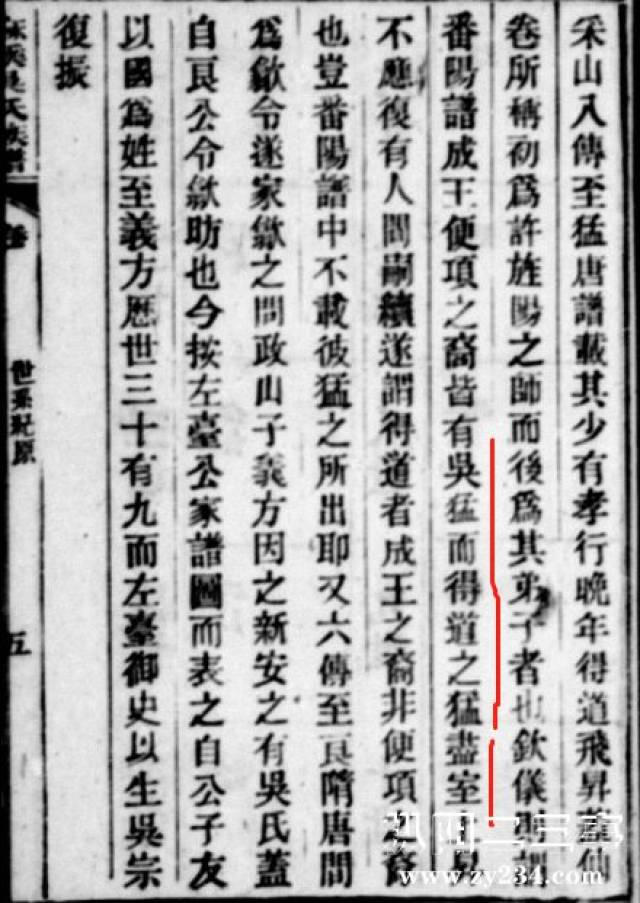 采山入傳至猛唐譜載其少有孝行晚年得道飛昇蓋仙
卷所稱初爲許旌陽之師而後爲其弟子者也欽儀
番陽譜成王便項之裔皆有吳猛而得道之猛盡室
不應復有人間嗣續遂謂得道者成王之裔非便項之裔
也豈番陽譜中不載彼猛之所出耶又六傳至良隋唐間
爲歙令遂家歙之問政山子義方因之新安之有吳氏蓋
自良公令歙昉也今按左臺公家譜圖而表之自公子友
以國爲姓至義方歷世三十有九而左臺御史以生吳宗
復振
氏族譜
卷
世系紀原
五
www.zy234.com